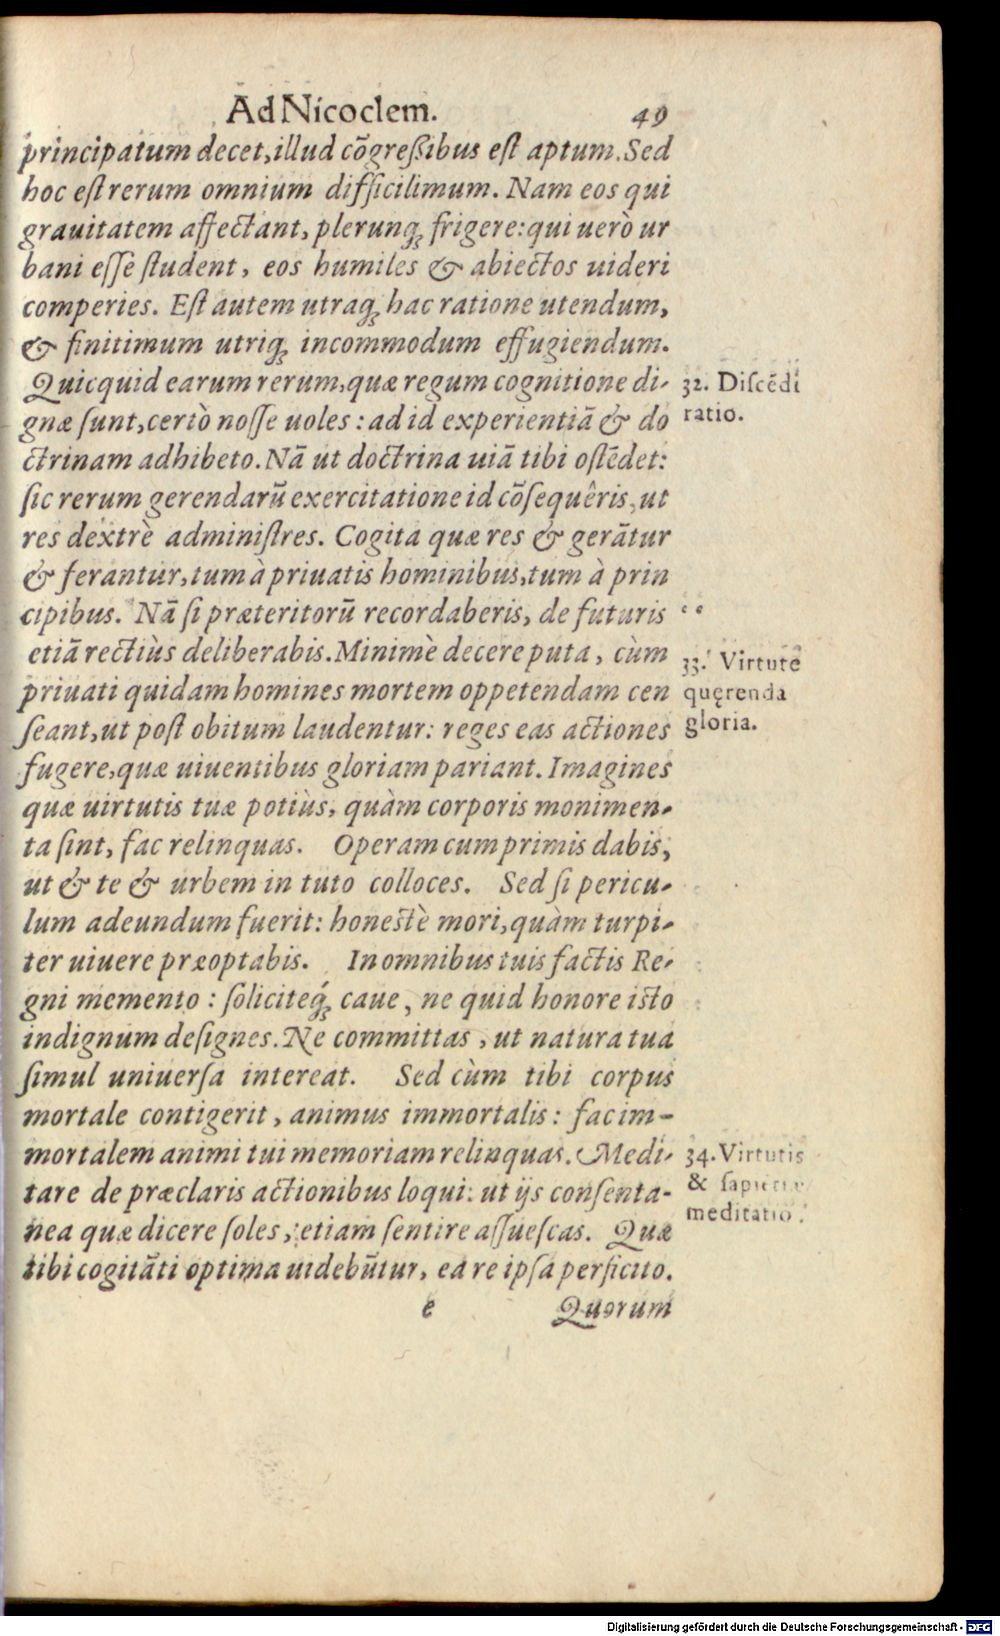 Ad Nicoclem. 49
principatum decet, illud cõgreſsibus eſt aptum. Sed
hoc eſt rerum omnium difficilimum. Nam eos qui
grauitatem affectant, plerunq; frigere: qui uerò ur
bani eſſe ſtudent, eos humiles & abiectos uideri
comperies. Eſt autem utraq; hac ratione utendum,
& finitimum utriq; incommodum effugiendum.
Quicquid earum rerum, quæ regum cognitione di-
gnæ ſunt, certò noſſe uoles: ad id experientiã & do
ctrinam adhibeto. Nã ut doctrina uiã tibi oſtẽdet:
ſic rerum gerendarũ exercitatione id cõſequêris, ut
res dextrè adminiſtres. Cogita quæ res & gerãtur
& ferantur, tum à priuatis hominibus, tum à prin
cipibus. Nã ſi præteritorũ recordaberis, de futuris
etiã rectiùs deliberabis. Minimè decere puta, cùm
priuati quidam homines mortem oppetendam cen
ſeant, ut poſt obitum laudentur: reges eas actiones
fugere, quæ uiuentibus gloriam pariant. Imagines
quæ uirtutis tuæ potiùs, quàm corporis monimen-
ta ſint, fac relinquas. Operam cum primis dabis,
ut & te & urbem in tuto colloces. Sed ſi pericu-
lum adeundum fuerit: honeſtè mori, quàm turpi-
ter uiuere præoptabis. In omnibus tuis factis Re-
gni memento: ſoliciteq́; caue, ne quid honore iſto
indignum deſignes. Ne committas, ut natura tua
ſimul uniuerſa intereat. Sed cùm tibi corpus
mortale contigerit, animus immortalis: fac im-
mortalem animi tui memoriam relinquas. Medi-
tare de præclaris actionibus loqui: ut ijs conſenta-
nea quæ dicere ſoles, etiam ſentire aſſueſcas. Quæ
tibi cogitãti optima uidebũtur, ea re ipſa perficito.
e Quorum
32. Diſcẽdi
ratio.
33. Virtute
quęrenda
gloria.
34. Virtutis
& ſapientiæ
meditatio.
Digitalisierung gefördert durch die Deutsche Forschungsgemeinschaft - DFG